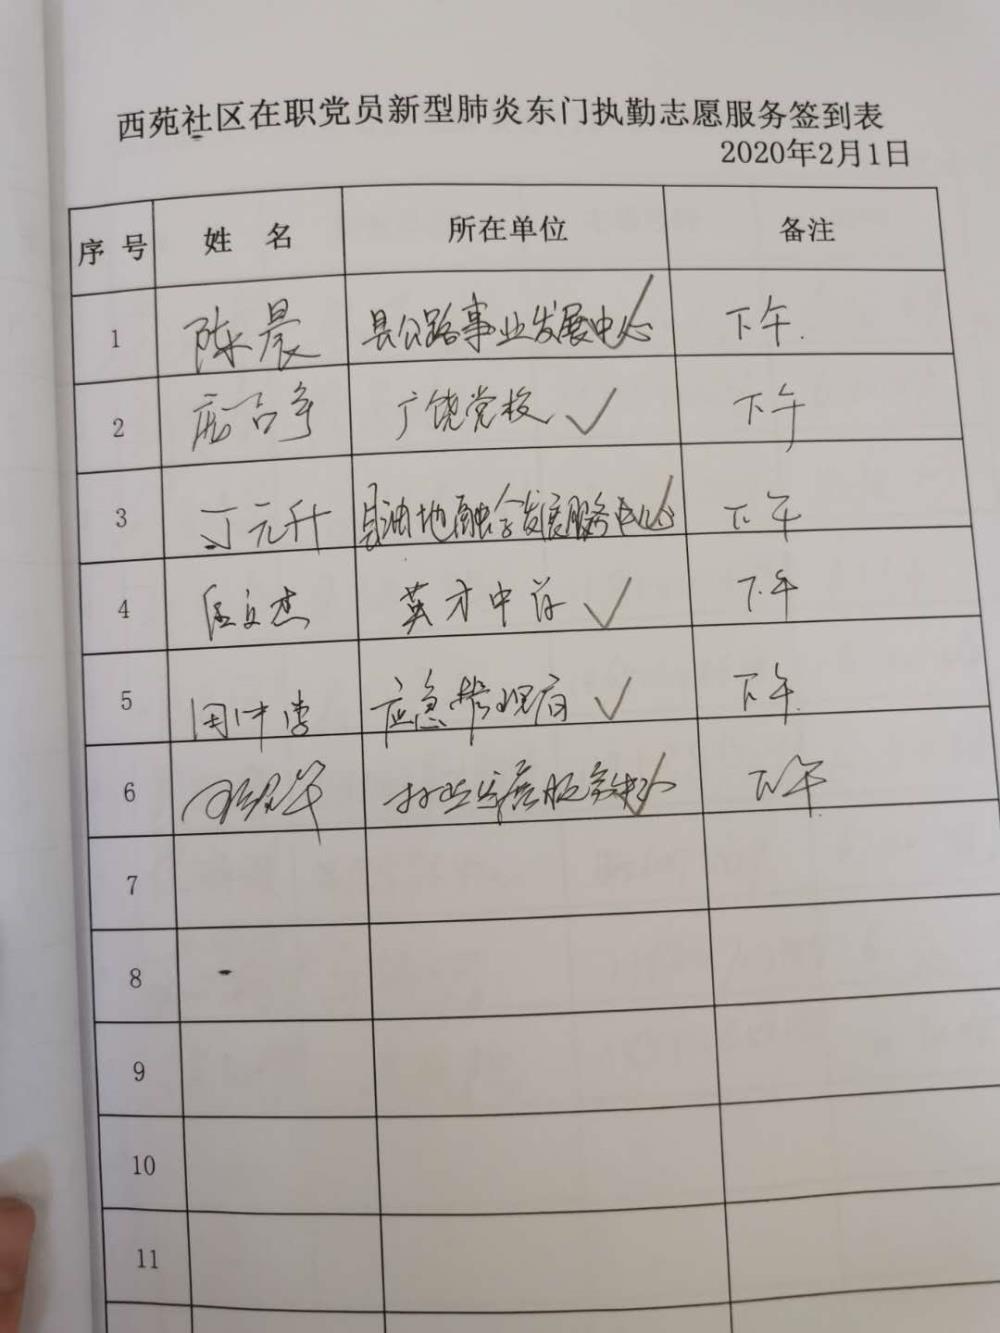 西苑社区在职党员新型肺炎东门执勤志愿服务签到表
2020年2月1日
序号 姓名 所在单位 备注
1 陈晨 县公路事业发展中心 下午.
2 广饶党校 下午
3 丁元升 县油地融合发展服务中心 下午
4 英才中学 下午
5 应急管理局 下午
6 下午
7
8
9
10
11